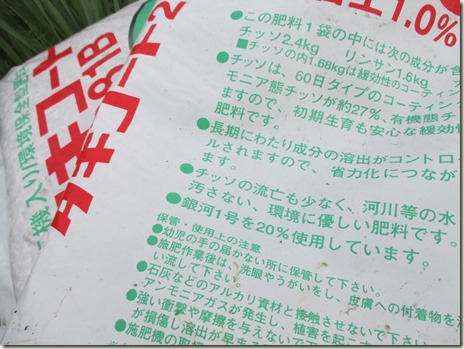 有機入り環境保全型肥
タキコート
818
コート2
苦土1.0%
●この肥料1袋の中には次の成分が含
チッソ2.4kg リンサン1.6kg
■チッソの内1.68kgは緩効性のコーティン
●チッソは、60日タイプのコーティン
モニア態チッソが約27%、有機態チ
ますので、初期生育も安心な緩効性
肥料です。
●長期にわたり成分の溶出がコントロー
ルされますので、省力化につなが
ます。
●チッソの流亡も少なく、河川等の水
汚さない、環境に優しい肥料です。
●銀河1号を20%使用しています。
保管・使用上の注意
●幼児の手の届かない所に保管して下さい。
●施肥作業後は、洗眼やうがいをし、皮膚への付着物を洗
い流して下さい。
●石灰などのアルカリ資材と接触させないで下さい。
アンモニアガスが発生し、植害を起こす
●強い衝撃や摩擦を与えないで下さい
が損傷し溶出が早まる
●施肥機の取扱